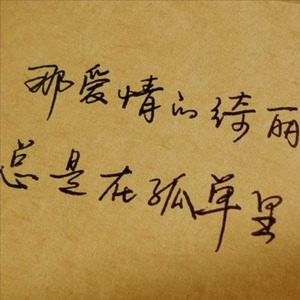 那爱情的绮丽
总是在孤单里